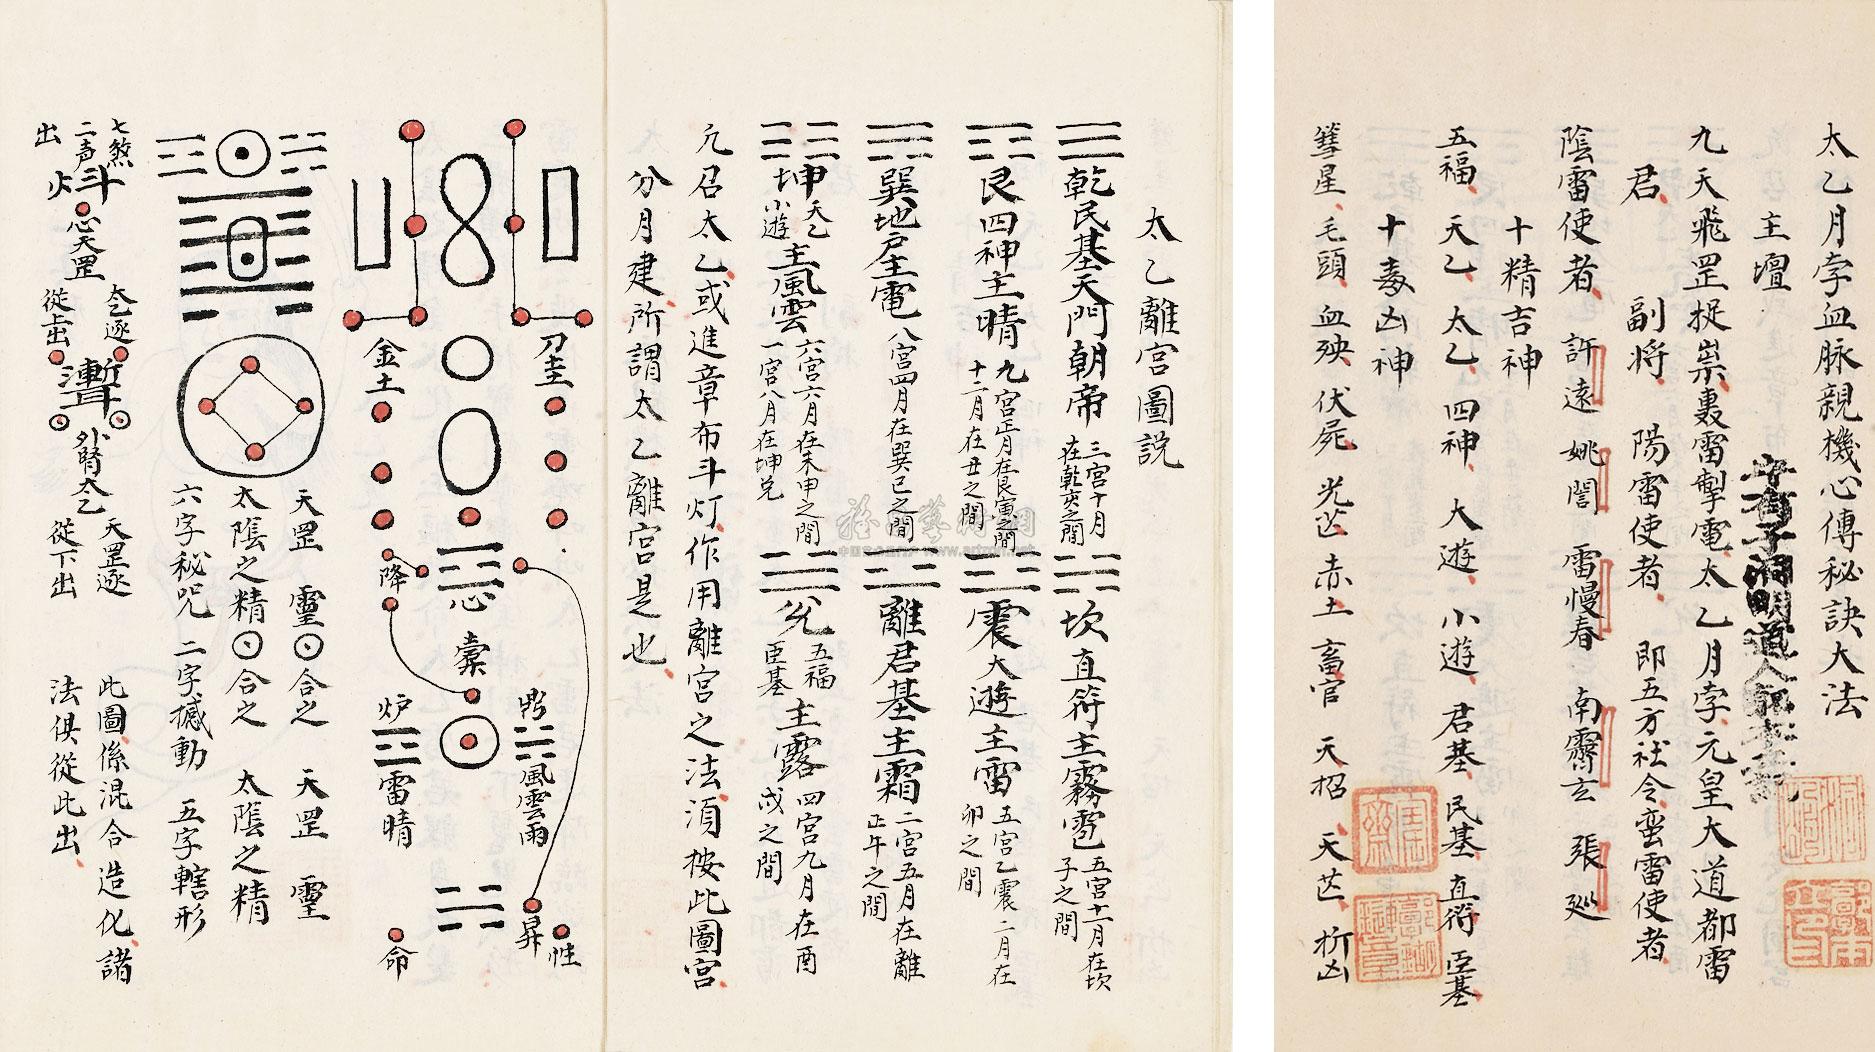 太乙月孛血脉親機心傳秘訣大法
主壇
九天飛罡捉祟轟雷掣電太乙月孛元皇大道都雷
君 副将 陽雷使者 即五方社令蛮雷使者
陰雷使者 許遠 姚誾 雷慢春 南霽云 張巡
十精吉神
五福 天乙 太乙 四神 大遊 小遊 君基 民基 直符 臣基
十毒凶神
彗星 毛頭 血殃 伏屍 光芒 赤土 畜官 天招 天芒 折凶
太乙離宫圖説
乾民基天門朝帝 三宫十月在乾亥之間
坎直符主霧雹 五宫十一月在坎子之間
艮四神主晴 九宫正月在艮寅之間十二月在丑之間
震大遊主雷 五宫乙震二月在卯之間
巽地户主電 八宫四月在巽巳之間
離君基主霜 二宫五月在離正午之間
坤天乙小遊主風雲 六宫六月在未申之間一宫八月在坤兑
兑五福臣基主露 四宫九月在酉戌之間
凢召太乙或進章布斗灯作用離宫之法須按此圖宫
分月建所謂太乙離宫是也
刀圭
金土
降
心
炉
雷晴
風雲雨
昇
性
命
天罡 靈合之 天罡 靈
太陰之精合之 太陰之精
六字秘咒 二字撼動 五字轄形
七煞
二声
出
斗
火
心天罡
從上出
外腎太乙
天罡逐
從下出
此圖係混合造化諸
法俱從此出